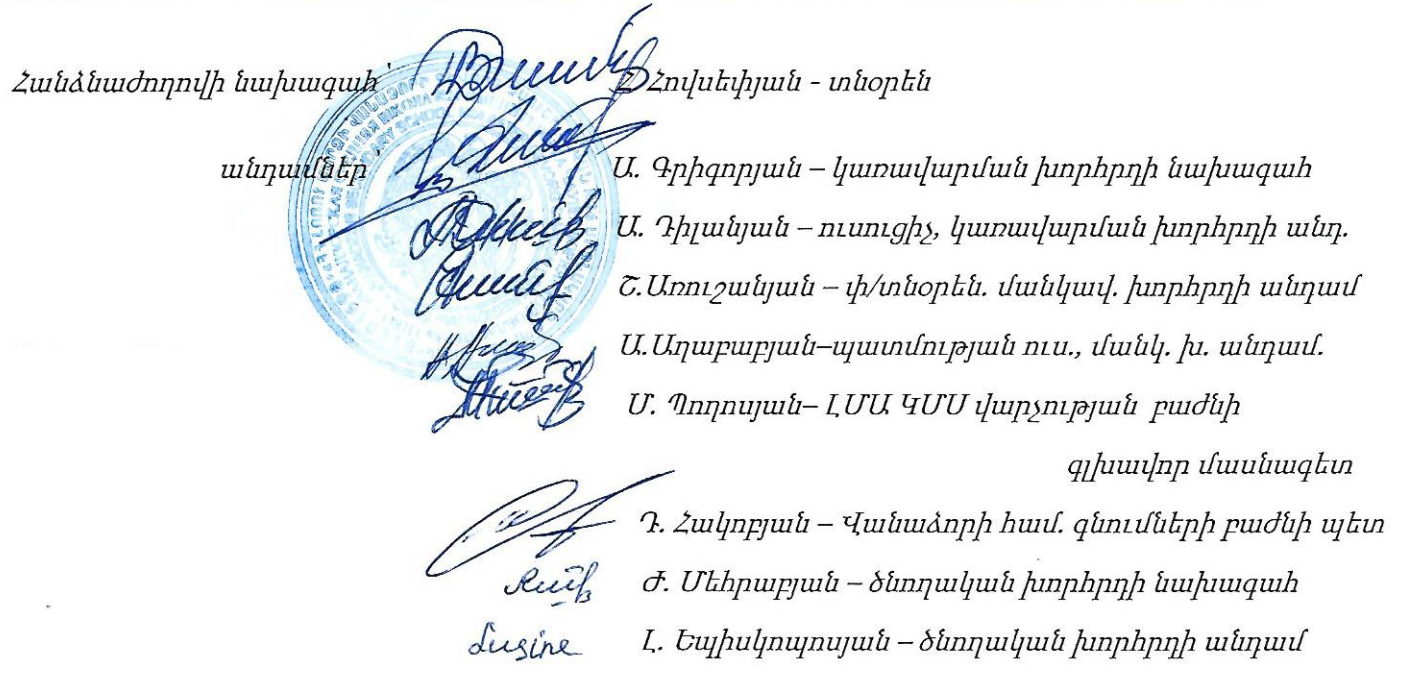 Հանձնաժողովի նախագահ՝ Հ Հովսեփյան - տնօրեն
անդամներ՝ Ա. Գրիգորյան – կառավարման խորհրդի նախագահ
Ա. Դիլանյան – ուսուցիչ, կառավարման խորհրդի անդ.
Շ.Առուշանյան – փ/տնօրեն. մանկավ. խորհրդի անդամ
Ա.Աղաբաբյան–պատմության ուս., մանկ. խ. անդամ.
Մ. Պողոսյան– ԼՄԱ ԿՄՍ վարչության բաժնի
գլխավոր մասնագետ
Դ. Հակոբյան – Վանաձորի համ. գնումների բաժնի պետ
Ժ. Մեհրաբյան – ծնողական խորհրդի նախագահ
Lusine Լ. Եպիսկոպոսյան – ծնողական խորհրդի անդամ